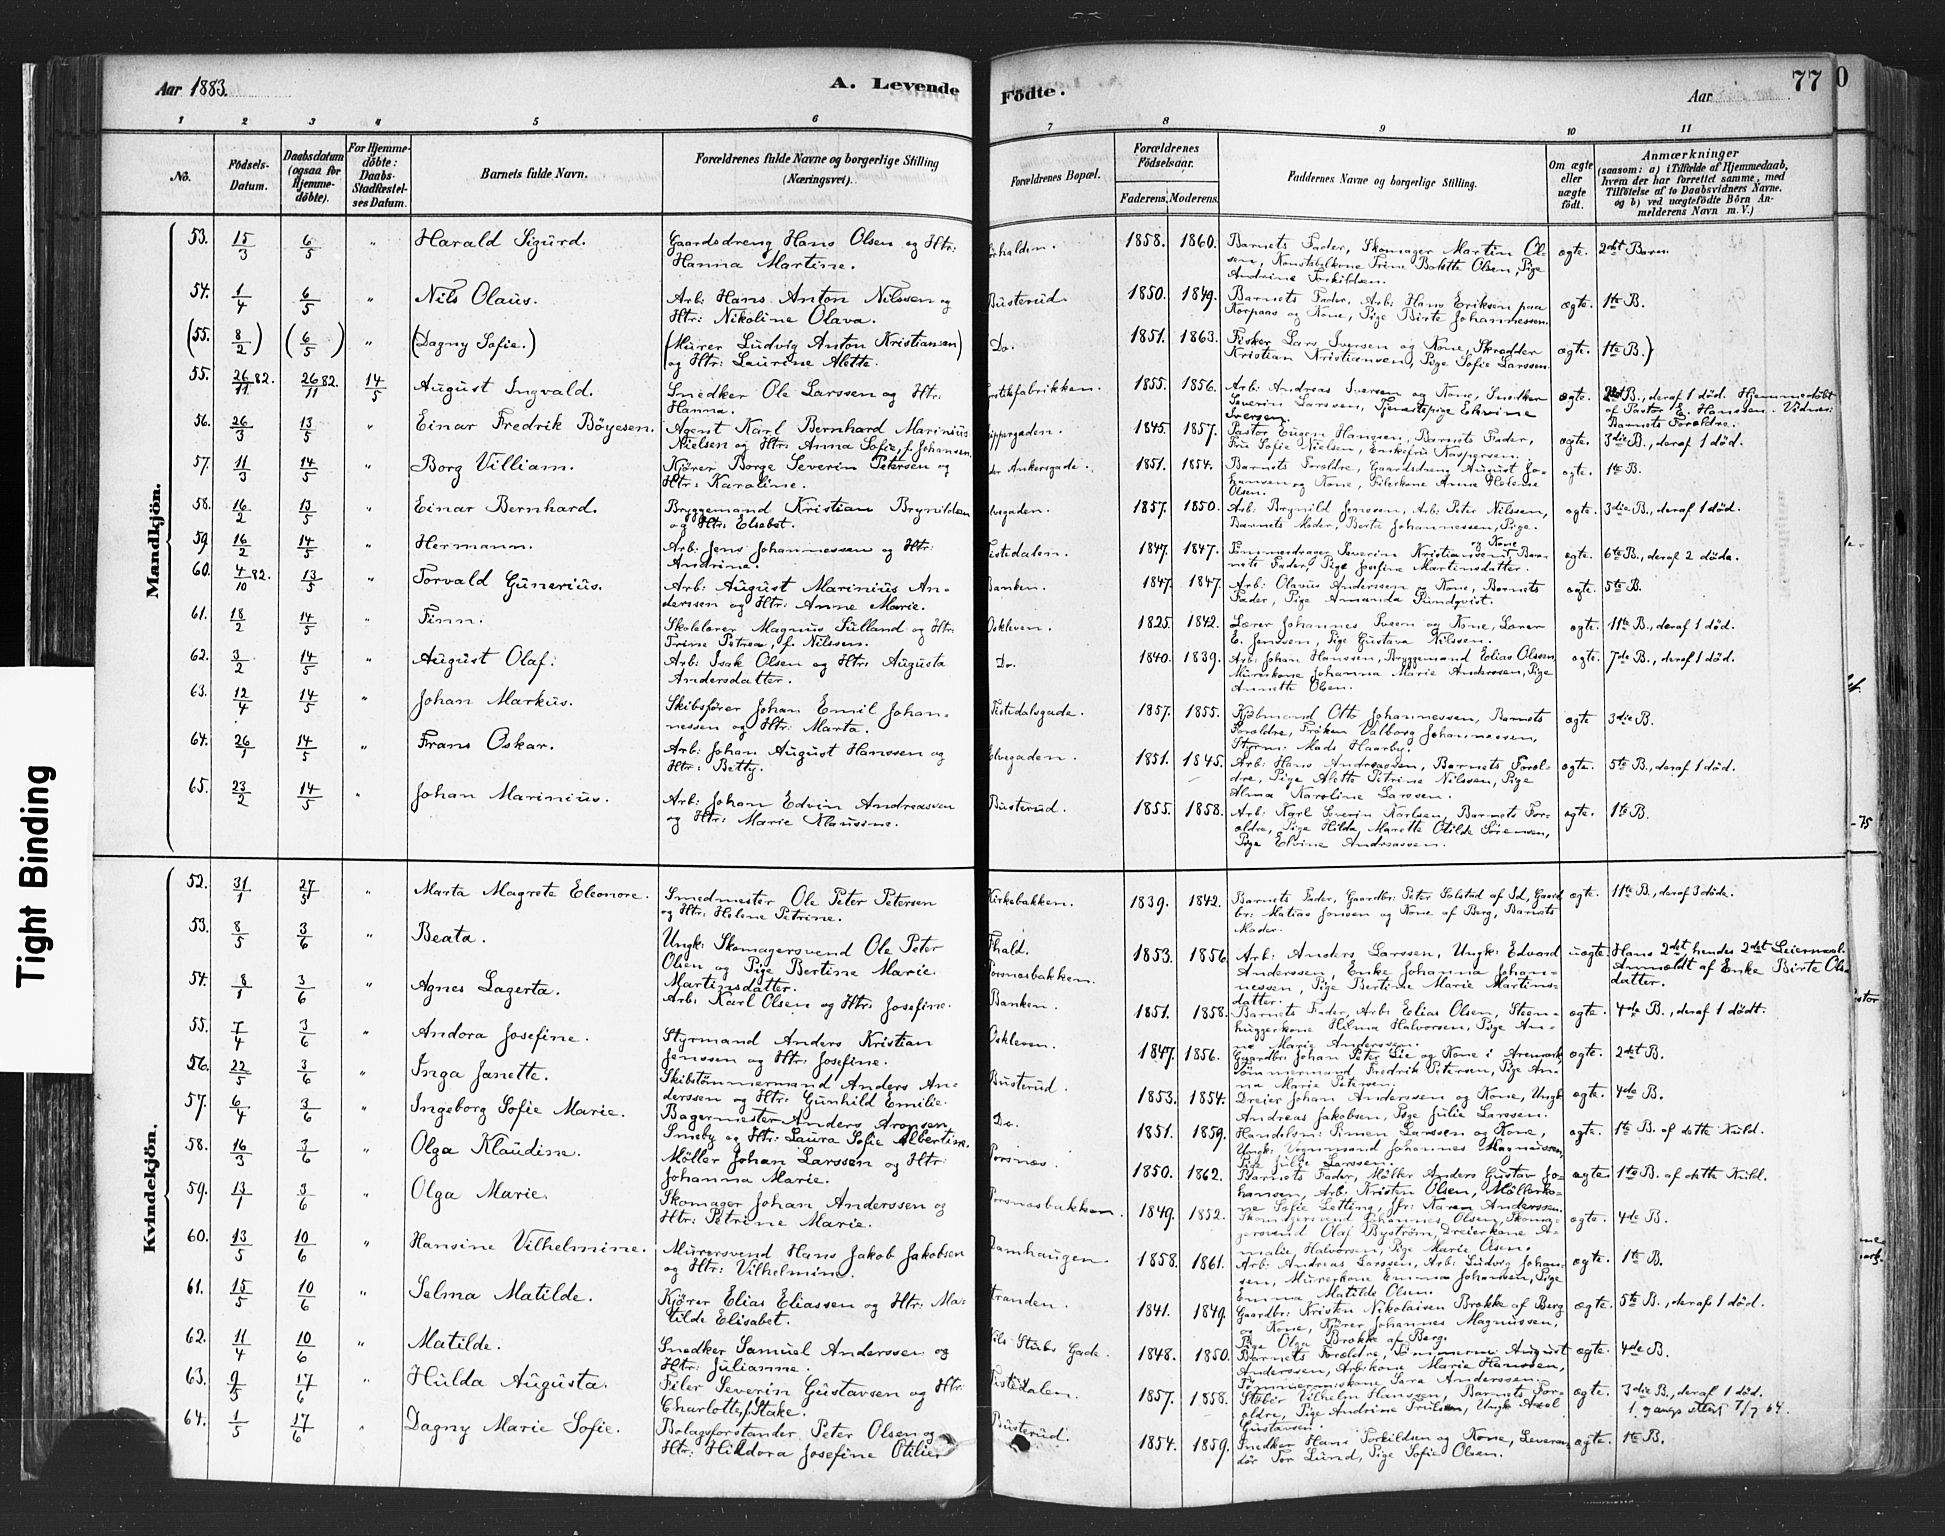 Aar 1883.
A. Levende
Födte.
Aar
77
0
Tight Binding
1 2 3 4 5 6 7 8 9 10 11
No.
Födsels-Datum.
Daabsdatum (ogsaa for Hjemmedöbte).
For Hjemmedöbte: Daabs-Stadfæstelses Datum.
Barnets fulde Navn.
Forældrenes fulde Navne og borgerlige Stilling (Næringsvei).
Forældrenes Bopæl.
Forældrenes Födselsaar.
Faderens. Moderens.
Faddernes Navne og borgerlige Stilling.
Om ægte eller uægte födt.
Anmærkninger
(saasom: a) i Tilfælde af Hjemmedaab, hvem der har forrettet samme, med Tilföielse af to Daabsvidners Navne. og b) ved uægtefödte Börn Anmelderens Navn m. V.)
Mandkjön.
53. 15/3 6/5 " Harald Sigurd. Gaardsdreng Hans Olsen og Htr: Hanna Martine. 1858. 1860. Barnets Fader, Skomager Martin Olsen, Konstabelkone Trine Bolette Olsen, Pige Andrine Torkildsen. ægte. 2det Barn.
54. 1/4 6/5 " Nils Olaus. Arb: Hans Anton Nilssen og Htr: Nikoline Olava. Busterud. 1850. 1849. Barnets Fader, Arb: Hans Eriksen paa Korpaas og Kone, Pige Birte Johannessen. ægte. 1te B.
(55. 8/2) (6/5) " (Dagny Sofie.) (Murer Ludvig Anton Kristiansen) og Htr: Laurine Alette. Do. 1851. 1863. Fisker Lars Iversen og Kone, Skrædder Kristian Kristiansen, Pige Sofie Larssen. ægte. 1te B.)
55. 26/11 82. 26/11 82. 14/5 August Ingvald. Snedker Ole Larssen og Htr: Hanna. 1855. 1856. Arb: Andreas Iversen og Kone, Snedker Severin Larssen, Tjenestepige Elevine Iversen. ægte. 2det B., deraf 1 död. Hjemmedöbt af Pastor E. Hanssen. Vidner: Barnets Forældre.
56. 26/3 13/5 " Einar Fredrik Böyesen. Agent Karl Bernhard Marinius Nielsen og Htr: Anna Sofie, f. Johansen. 1845. 1857. Pastor Eugen Hanssen, Barnets Fader, Fru Sofie Nielsen, Enkefru Kaspersen. ægte. 3die B., deraf 1 död.
57. 11/3 14/5 " Borg Villiam. Kjörer Borge Severin Petersen og Htr: Karoline. 1851. 1854. Barnets Forældre, Gaardsdreng August Johansen og Kone, Filerkone Anne Helene Olsen. ægte. 1te B.
58. 16/2 13/5 " Einar Bernhard. Bryggemand Kristian Brynildsen og Htr: Elsebet. 1857. 1850. Arb: Brynild Jenssen, Arb: Peter Nilsen, Barnets Moder, Berte Johannessen, Pige. ægte. 3die B., deraf 1 död.
59. 16/2 14/5 " Hermann. Arb: Jens Johannessen og Htr: Andrine. Tistedalen. 1847. 1847. Tömmerdrager Severin Kristiansen og Kone, Barnets Fader, Pige Josefine Martinsdatter. ægte. 6te B., deraf 2 döde.
60. 4/10 82. 13/5 " Torvald Gunerius. Arb: August Marinius Anderssen og Htr: Anne Marie. Banken. 1847. 1847. Arb: Olavus Anderssen og Kone, Barnets Fader, Pige Amanda Sundqvist. ægte. 5te B.
61. 18/2 14/5 " Finn. Skolelærer Magnus Sulland og Htr: Trine Petrea, f. Nilssen. Oskleven. 1825. 1842. Lærer Johannes Sveen og Kone, Lærer E. Jenssen, Pige Gustava Nilssen. ægte. 11te B., deraf 1 död.
62. 3/2 14/5 " August Olaf. Arb: Isak Olsen og Htr: Augusta Andersdatter. Do. 1840. 1839. Arb: Johan Hanssen, Bryggemand Elias Olssen, Murerkone Johanna Marie Anderssen, Pige Annette Olsen. ægte. 7de B., deraf 1 död.
63. 12/4 14/5 " Johan Markus. Skibsförer Johan Emil Johannessen og Htr: Marta. Tistedalsgade. 1857. 1855. Kjölmand Otto Johannessen, Barnets Forældre, Fröken Valborg Johannessen, Styrm: Mads Haarby. ægte 3die B.
64. 26/1 14/5 " Frans Oskar. Arb: Johan August Hanssen og Htr: Betty. 1851. 1845. Arb: Hans Andreassen, Barnets Forældre, Pige Alette Petrine Nilssen, Pige Alma Karoline Larssen. ægte. 5te B., deraf 1 död.
65. 23/2 14/5 " Johan Marinius. Arb: Johan Edvin Andreassen og Htr: Marie Klausine. Busterud. 1855. 1858. Arb: Karl Severin Karlsen, Barnets Forældre, Pige Hilda Marette Otilde Sörensen, Pige Elvine Andreassen. ægte. 1te B.
Kvindekjön.
52. 31/1 27/5 " Marta Magrete Eleonore. Smedmester Ole Peter Petersen og Htr: Helene Petrine. Kirkebakken. 1839. 1842. Barnets Fader, Gaardbr: Peter Solstad af Id, Gaardbr: Matias Jonsen og Kone af Berg, Barnets Moder. ægte. 11te B., deraf 3 döde.
53. 8/5 3/6 " Beata. Ungk: Skomagersvend Ole Peter Olsen og Pige Bertine Marie Martinsdatter. Fhald. Porsnæsbakken. 1853. 1856. Arb: Anders Larssen, Ungk: Edvard Anderssen, Enke Johanna Johannessen, Pige Bertine Marie Martinsdatter. uægte. Hans 2det hendes 2det Leiermaal. Anmeldt af Enke Birte Olsdatter.
54. 8/1 3/6 " Agnes Lagerta. Arb: Karl Olsen og Htr: Josefine. Banken. 1851. 1858. Barnets Fader, Arb: Elias Olsen, Steenhuggerkone Hilma Halvorsen, Pige Anne Marie Anderssen. ægte. 4de B., deraf 1 dödt.
55. 7/4 3/6 " Andora Josefine. Styrmand Anders Kristian Jenssen og Htr: Josefine. Oskleven. 1847. 1856. Gaardbr: Johan Peter Lie og Kone i Aremark, Tömmermand Fredrik Petersen, Pige Anna Marie Petersen. ægte. 2det B.
56. 22/5 3/6 " Inga Janette. Skibstömmermand Anders Anderssen og Htr: Gunhild Emilie. Busterud. 1853. 1854. Dreier Johan Anderssen og Kone, Ungk: Andreas Jakobsen, Pige Julie Larssen. ægte. 4de B.
57. 6/4 3/6 " Ingeborg Sofie Marie. Bagermester Anders Aronsen Smeby og Htr: Laura Sofie Albertine. Do. 1851. 1859. Handelsm: Simen Larssen og Kone, Ungk: Vognmand Johannes Magnussen, Pige Julie Larssen. ægte. 1te B. af dette Kuld.
58. 16/3 3/6 " Olga Klaudine. Möller Johan Larssen og Htr: Johanna Marie. Porsnæs. 1850. 1862. Barnets Fader, Möller Anders Gustav Johansen, Arb: Kristen Olsen, Möllerkone Sofie Letting, Jfr: Karen Anderssen. ægte 1te B. af dette Kuld.
59. 13/1 3/6 " Olga Marie. Skomager Johan Anderssen og Htr: Petrine Marie. Porsnæsbakken. 1849. 1852. Skomagersvend Johannes Olsen, Skomagersvend Olaf Byström, Dreierkone Amalie Halvorsen, Pige Marie Olsen. ægte. 4de B.
60. 13/5 10/6 " Hansine Vilhelmine. Murersvend Hans Jakob Jakobsen og Htr: Vilhelmine. Damhaugen. 1858. 1861. Arb: Andreas Larssen, Arb: Ludvig Johansen, Murerkone Emma Johanssen, Pige Emma Matilde Olsen. ægte. 1te B.
61. 15/5 10/6 " Selma Matilde. Kjörer Elias Eliassen og Htr: Matilde Elisabet. 1841. 1849. Gaardbr: Kristen Nikolaisen Brække af Berg og Kone, Kjörer Johannes Magnussen, Pige Olga Brække af Berg. ægte. 5te B., deraf 1 död.
62. 11/4 10/6 " Matilde. Snedker Samuel Anderssen og Htr: Julianne. Nils Stubs Gade. 1848. 1850. Barnets Forældre, Tömmerm: August Anderssen, Arb:kone Marie Hanssen, Tömmermandskone Sara Anderssen. ægte. 4de B.
63. 9/5 17/6 " Hulda Augusta. Filer Severin Gustavsen og Htr: Charlotte, f. Stake. Tistedalen. 1857. 1858. Stöber Vilhelm Hanssen, Barnets Forældre, Pige Andrine Trulssen, Ungk: Axel Gustavsen. ægte. 3die B., deraf 1 död. 1. gangs attest 7/7 64.
64. 1/5 17/6 " Dagny Marie Sofie. Bolagsforstander Peter Olsen og Htr: Hildora Josefine Otilie. Busterud. 1854. 1859. Snedker Hans Torkildsen og Kone, Leverandör Tor Lund, Pige Sofie Olsen. ægte. 1te B.